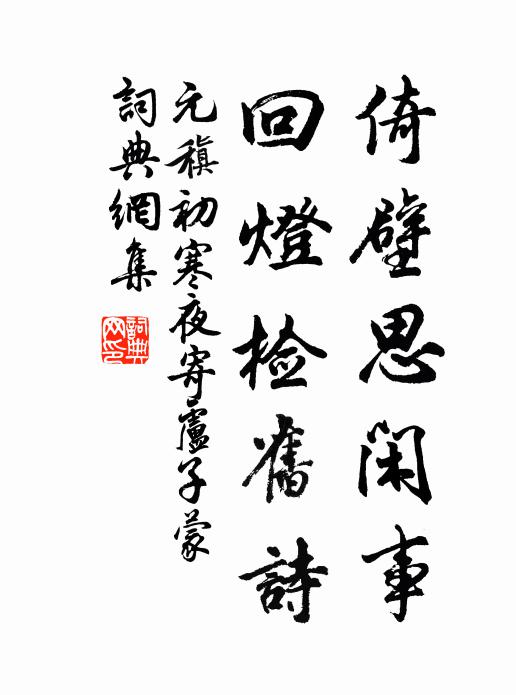 倚壁思閑事
回燈檢舊詩
元稹初寒夜寄盧子蒙
詞典網集
詞典
网印